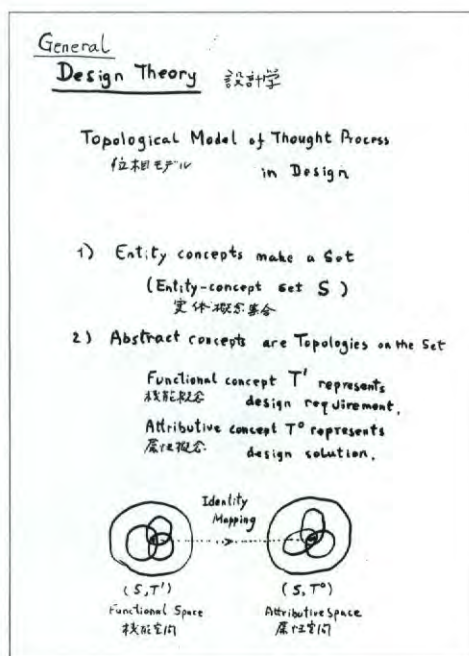 General
Design Theory 設計学
Topological Model of Thought Process
位相モデル in Design
1) Entity concepts make a Set
(Entity-concept set S)
実体概念集合
2) Abstract concepts are Topologies on the Set
Functional concept T' represents
機能概念 design requirement.
Attributive concept T⁰ represents
属性概念 design solution.
Identity
Mapping
(S,T') (S,T⁰)
Functional Space Attributive Space
機能空間 属性空間